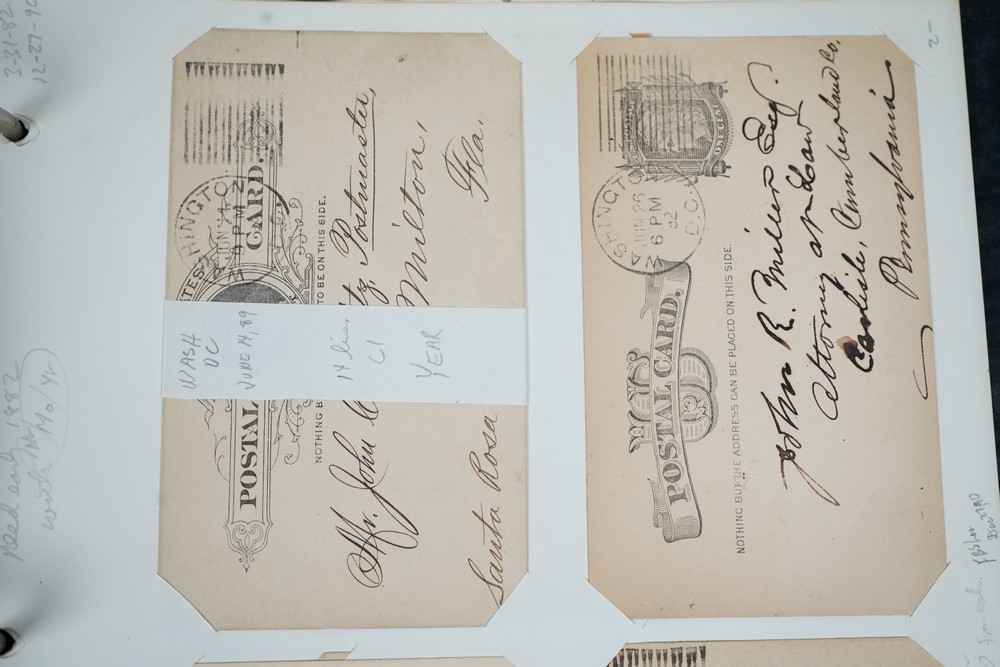 3-31-82
12-27-90
need early 1882
with Mo/yr
UNITED STATES
POSTAL CARD.
NOTHING B
TO BE ON THIS SIDE.
HINGTO
JUN 14
9 PM
WASH
DC
JUNE 14, 89
14 lines
C1
YEAR
Offr. John C
itz Postmaster,
Milton,
Santa Rosa
Fla.
2-
WASHINGTON
JUN 26
6 PM
82
D.C.
US
POSTAL CARD.
NOTHING BUT THE ADDRESS CAN BE PLACED ON THIS SIDE.
John R. Miller Esq.
Attorney at Law
Carlisle, Cumberland Co.
Pennsylvania